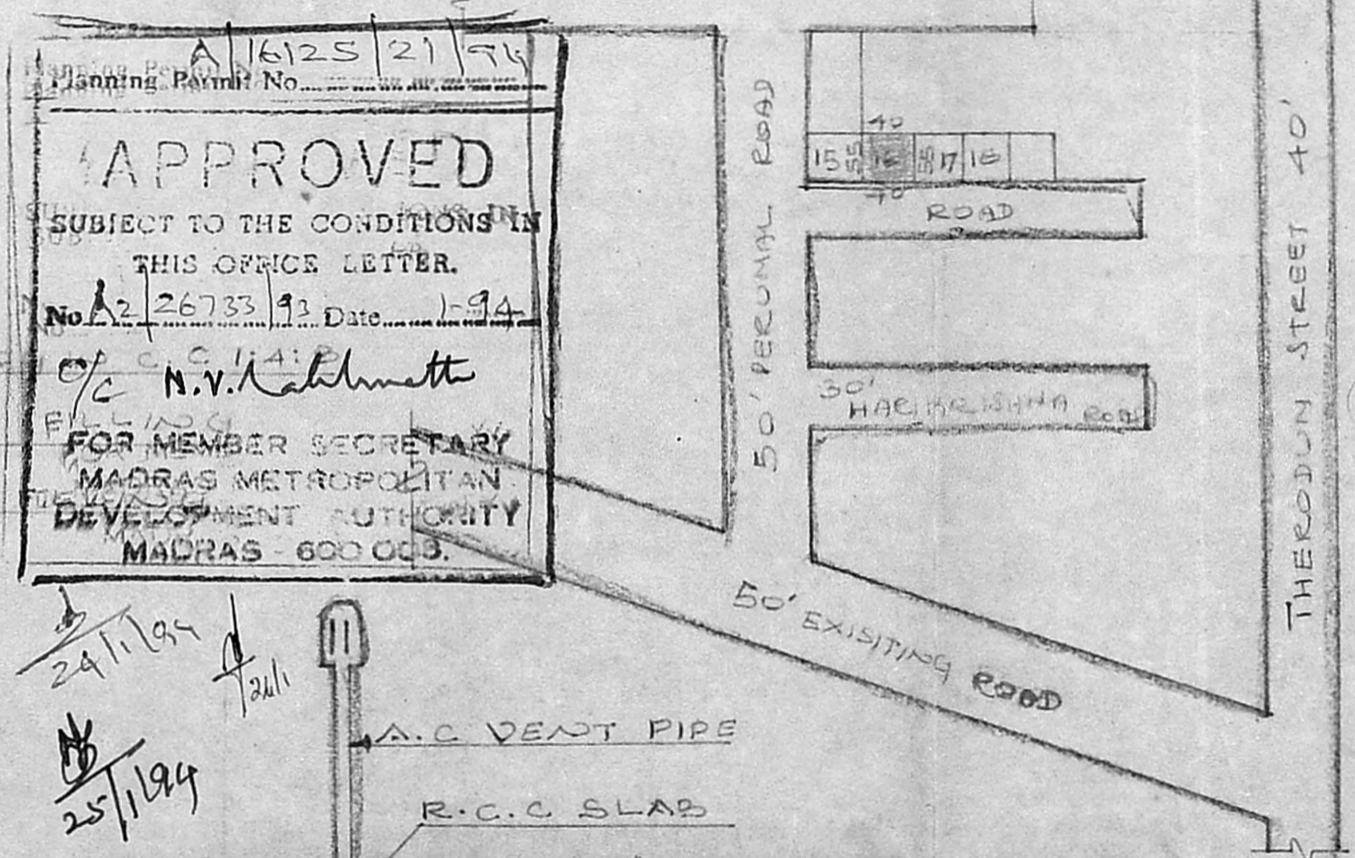 Planning Permit No. A/16125/21/94
APPROVED
SUBJECT TO THE CONDITIONS IN
THIS OFFICE LETTER.
No. A2/26733/93 Date 1-94
O/C N.V.
FOR MEMBER SECRETARY
MADRAS METROPOLITAN
DEVELOPMENT AUTHORITY
MADRAS - 600 008.
24/1/94
24/1
25/1/94
A.C VENT PIPE
R.C.C SLAB
50' PERUMAL ROAD
40
15 55 16 55 17 18
40
ROAD
30' HARIKRISHNA ROAD
50' EXISITING ROAD
THERODUN STREET 40'